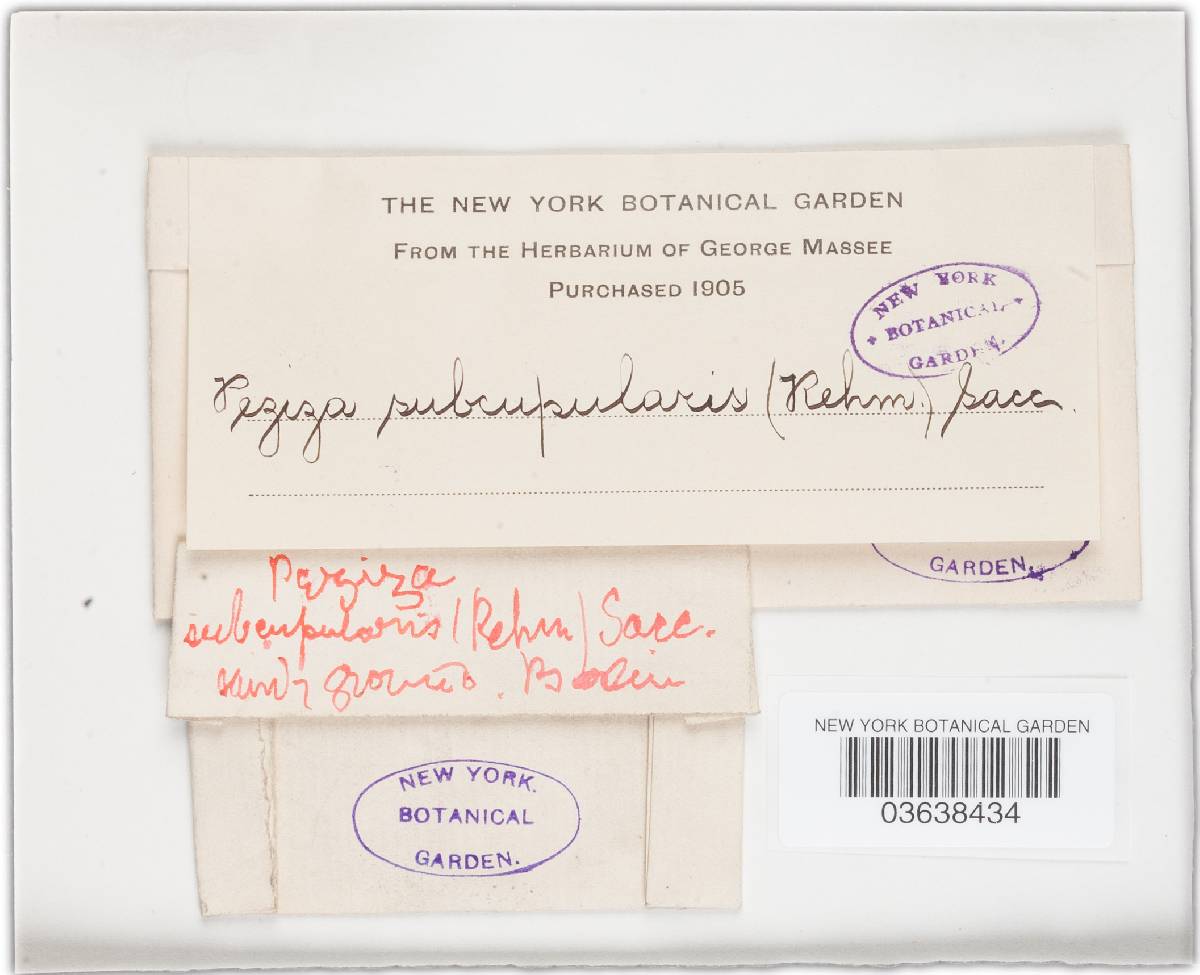 THE NEW YORK BOTANICAL GARDEN
FROM THE HERBARIUM OF GEORGE MASSEE
PURCHASED 1905
NEW YORK
BOTANICAL
GARDEN.
Peziza subcupularis (Rehm.) Sacc.
GARDEN.
Peziza
subcupularis (Rehm) Sacc.
sandy ground.
NEW YORK.
BOTANICAL
GARDEN.
NEW YORK BOTANICAL GARDEN
03638434